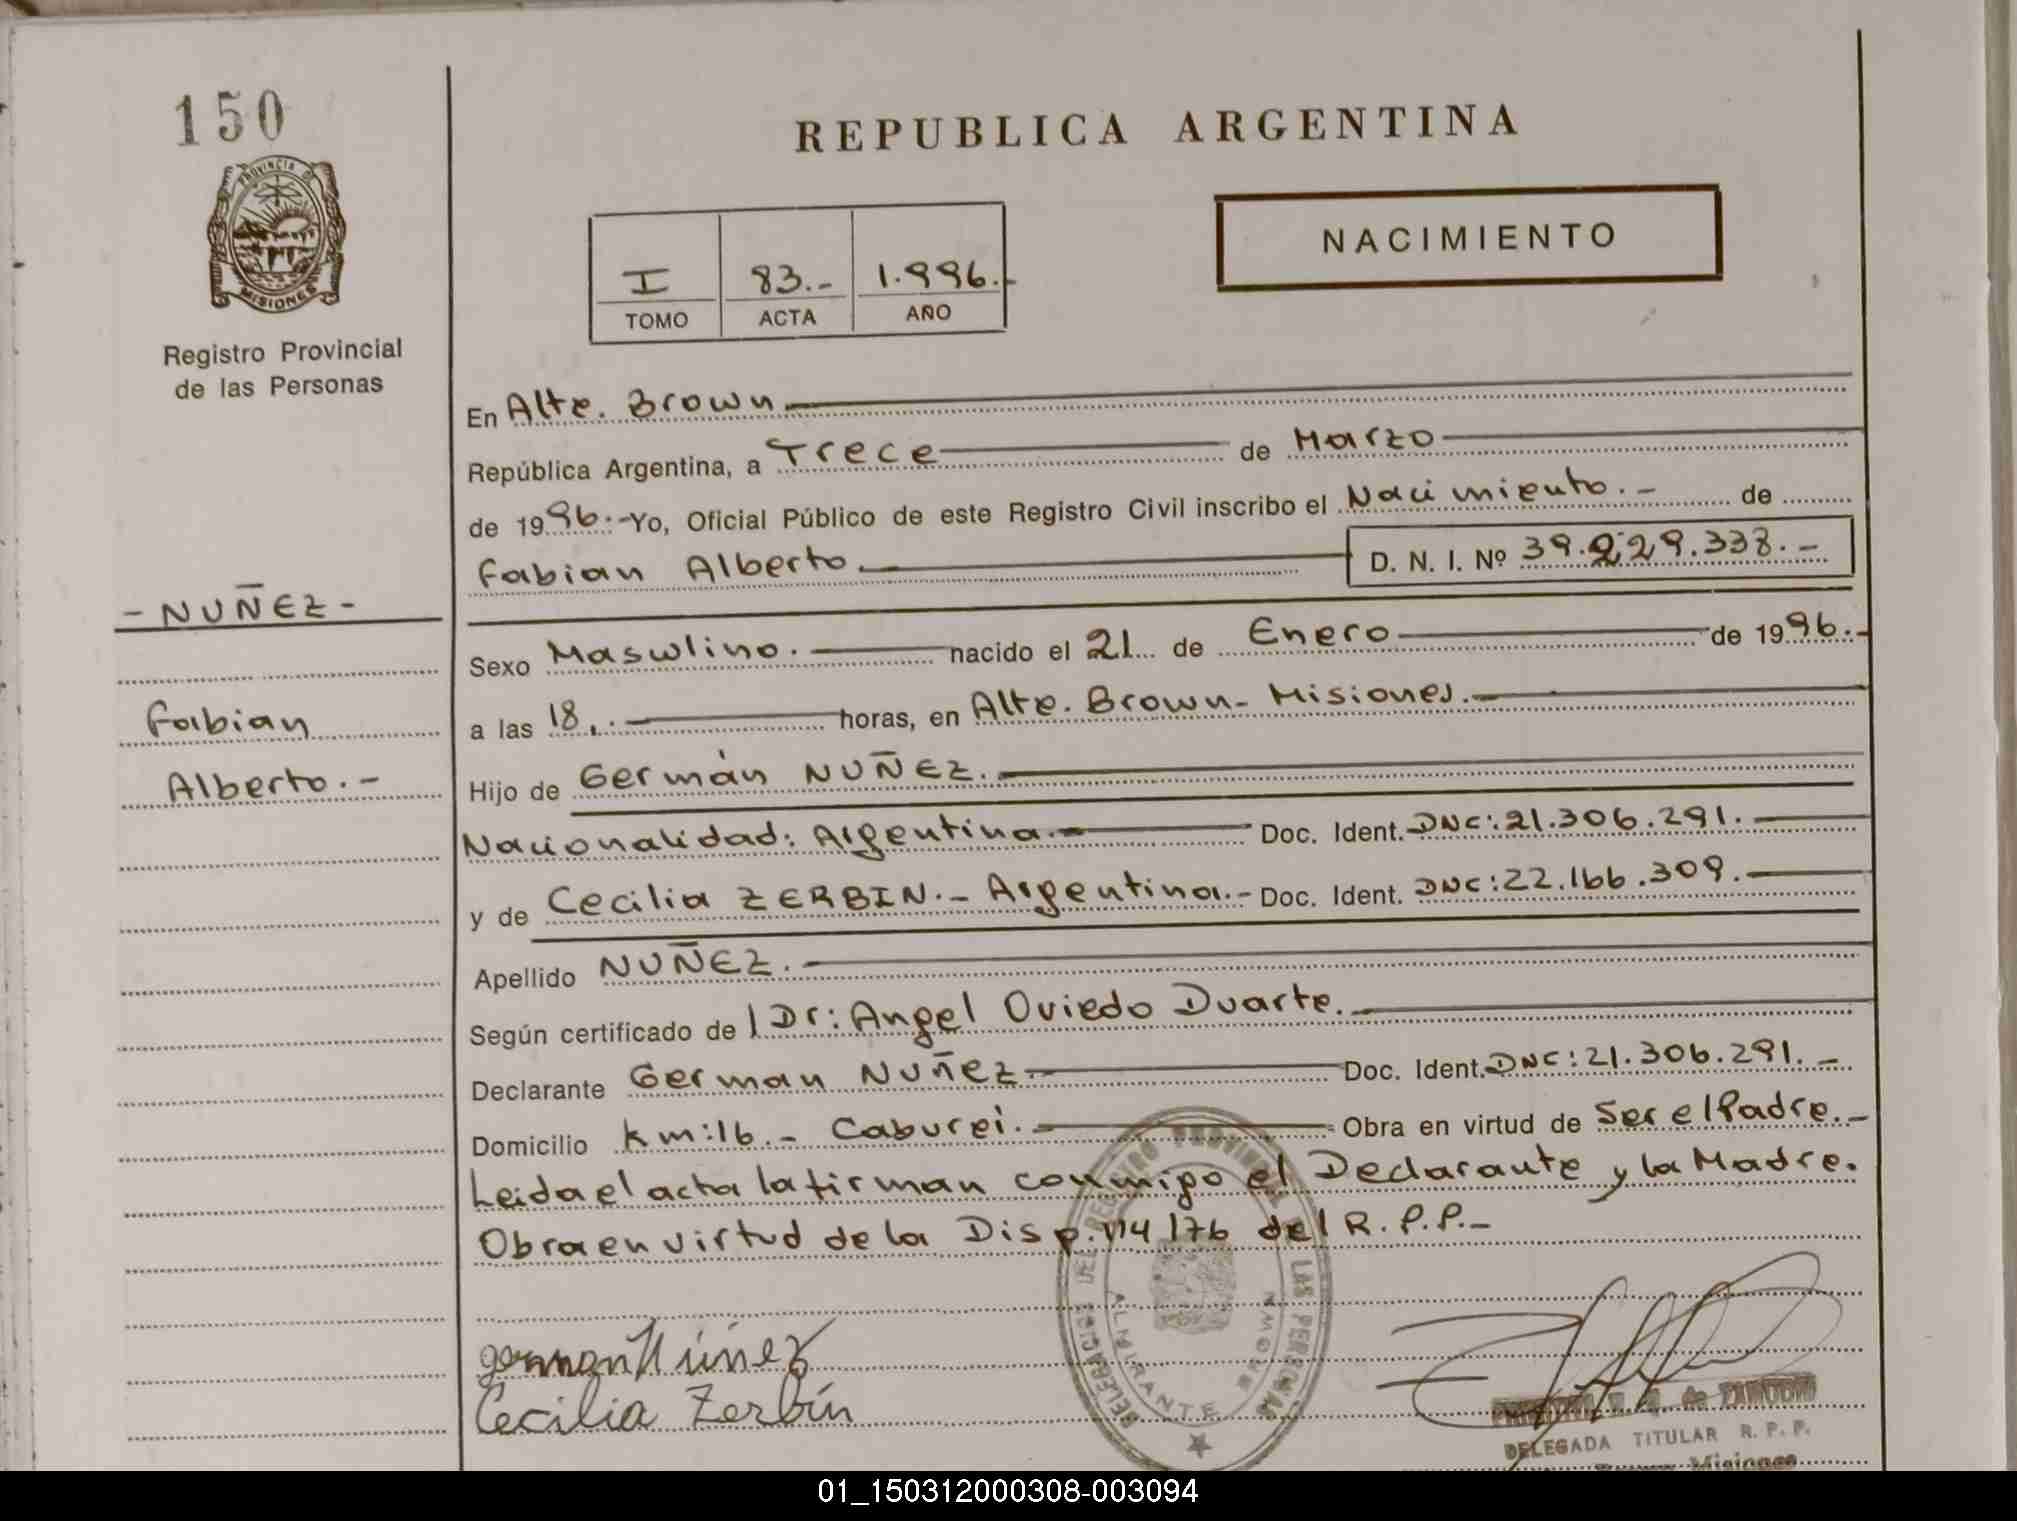 150
REPUBLICA ARGENTINA
PROVINCIA DE
MISIONES
Registro Provincial
de las Personas
NACIMIENTO
I 83.- 1.996.-
TOMO ACTA AÑO
En Alte. Brown
República Argentina, a Trece de Marzo
de 1996.- Yo, Oficial Público de este Registro Civil inscribo el Nacimiento.- de
Fabian Alberto. D. N. I. Nº 39.229.338.-
- NUÑEZ -
Fabian
Alberto.-
Sexo Masculino. nacido el 21 de Enero de 1996.-
a las 18. horas, en Alte. Brown- Misiones.-
Hijo de Germán NUÑEZ.
Nacionalidad: Argentina.- Doc. Ident. DNC: 21.306.291.
y de Cecilia ZERBIN.- Argentina.- Doc. Ident. DNC: 22.166.309.
Apellido NUÑEZ.
Según certificado de Dr: Angel Oviedo Duarte.
Declarante German Nuñez Doc. Ident. DNC: 21.306.291.-
Domicilio Km: 16.- Caburei. Obra en virtud de Ser el Padre.-
Leida el acta la firman conmigo el Declarante y la Madre.
Obra en virtud de la Disp. 114/76 del R.P.P.-
DEL REGISTRO PROVINCIAL DE LAS PERSONAS
ALMIRANTE BROWN
german Núñez
Cecilia Zerbín
DELEGADA TITULAR R. P. P.
Misiones
01_150312000308-003094